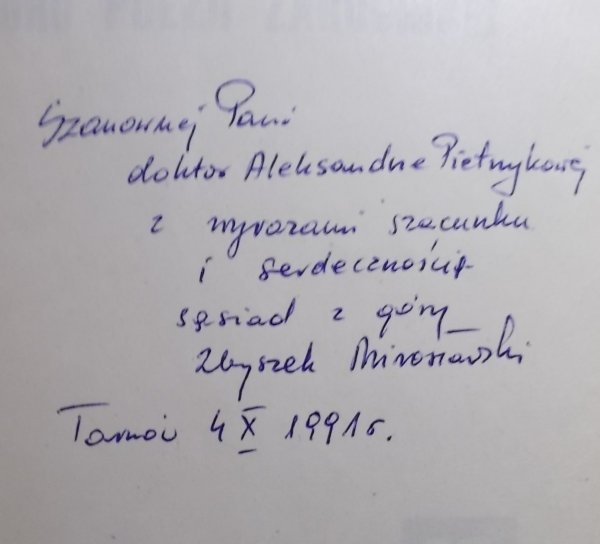 Szanownej Pani
doktor Aleksandrze Pietrzykowej
z wyrazami szacunku
i serdecznością
sąsiad z góry
Zbyszek Mirosławski
Tarnów 4 X 1991 r.